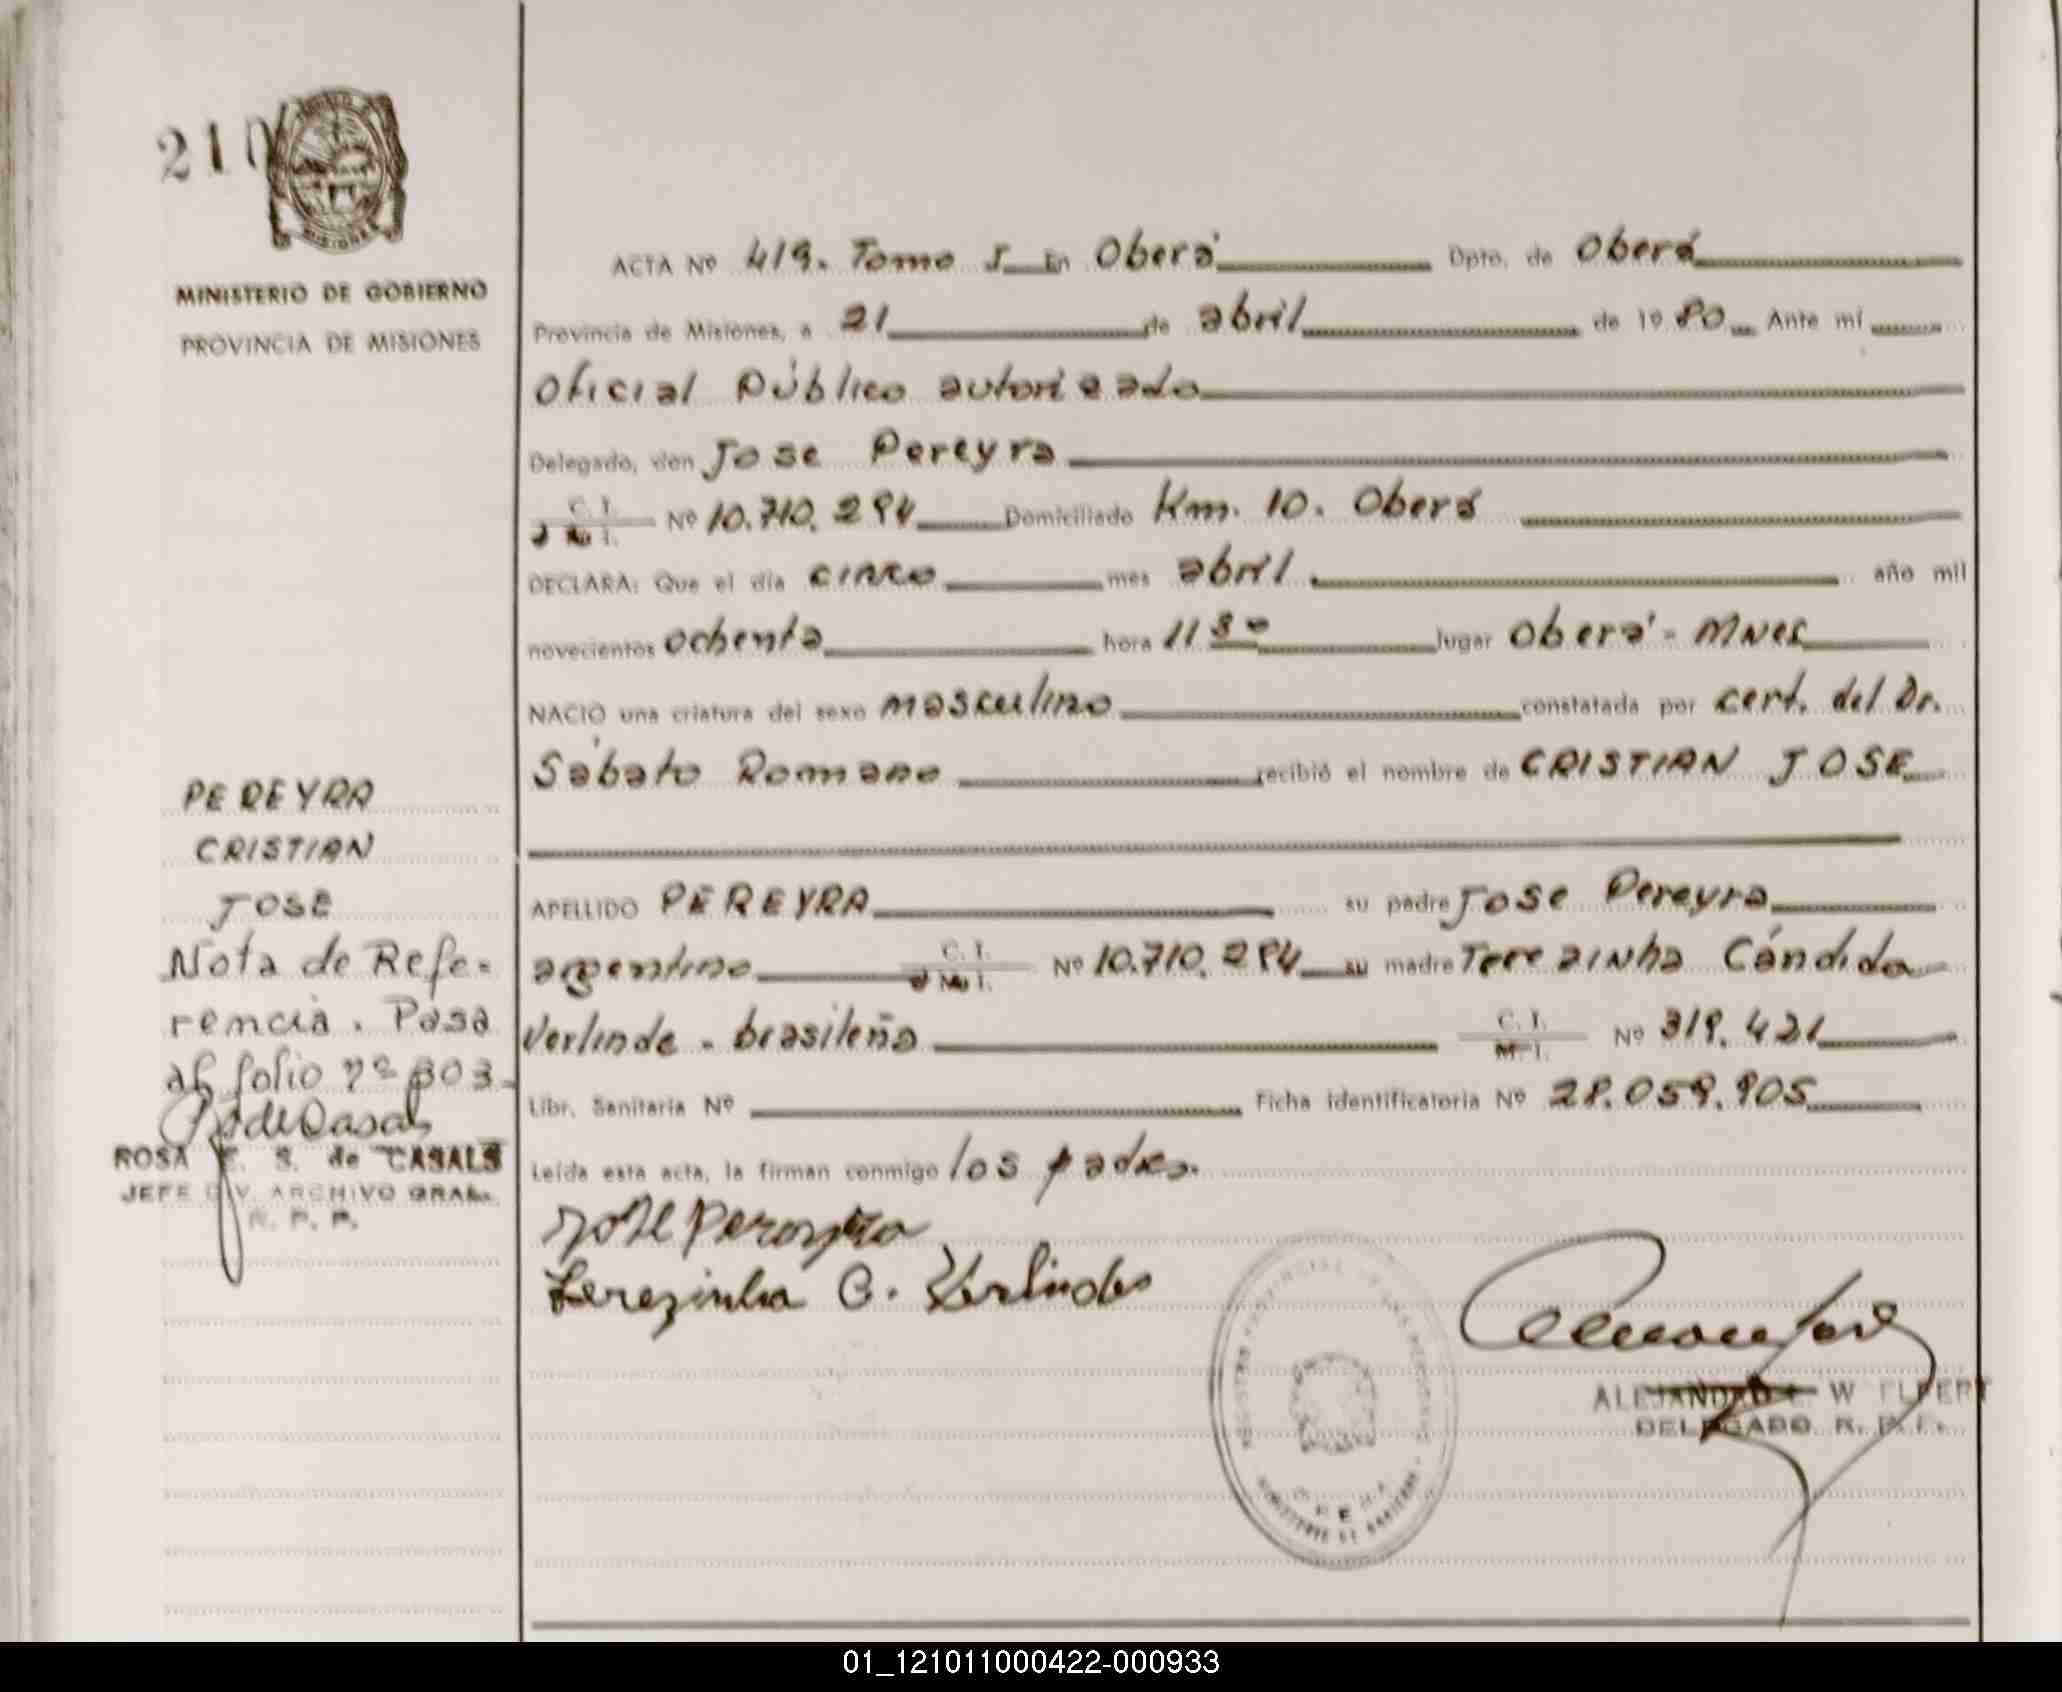 210
MISIONES
MINISTERIO DE GOBIERNO
PROVINCIA DE MISIONES
ACTA Nº 419. Tomo I En Oberá Dpto. de Oberá
Provincia de Misiones, a 21 de abril de 1980 Ante mí
Oficial Público autorizado
Delegado, don Jose Pereyra
C. I.
M. I. Nº 10.710.284 Domiciliado Km. 10. Oberá
DECLARA: Que el día cinco mes abril año mil
novecientos ochenta hora 11 30 lugar Oberá - Mnes
NACIO una criatura del sexo masculino constatada por cert. del Dr.
Sábato Romano recibió el nombre de CRISTIAN JOSE
PEREYRA
CRISTIAN
JOSE
Nota de Refe-
rencia. Pasa
al folio nº 303.
ROSA E. S. de CASALS
JEFE DIV. ARCHIVO GRAL.
R. P. P.
APELLIDO PEREYRA su padre Jose Pereyra
argentino C. I.
M. I. Nº 10.710.284 su madre Terezinha Cándida
Verlinde - brasileña C. I.
M. I. Nº 319.421
Libr. Sanitaria Nº Ficha identificatoria Nº 28.059.905
Leída esta acta, la firman conmigo los padres.
Jose Pereyra
Terezinha C. Verlinde
ALEJANDRO W
DELEGADO R. P. P.
01_121011000422-000933